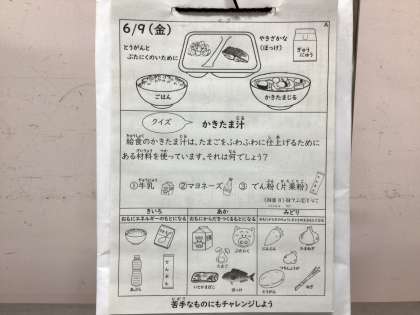 A
6/9(金)
とうがんと
ぶたにくのいために
やきざかな
(ほっけ)
ぎゅう
にゅう
ごはん
かきたまじる
クイズ
かきたま汁
給食のかきたま汁は、たまごをふわふわに仕上げるために
ある材料を使っています。それは何でしょう?
①牛乳 ②マヨネーズ ③でん粉(片栗粉)
きいろ
あか
みどり
おもにエネルギーのもとになる
おもにからだをつくるもとになる
ぶたにく
たまご
ほっけ
にんじん
たまねぎ
とうがん
ねぎ
あぶら
でんぷん
苦手なものにもチャレンジしよう